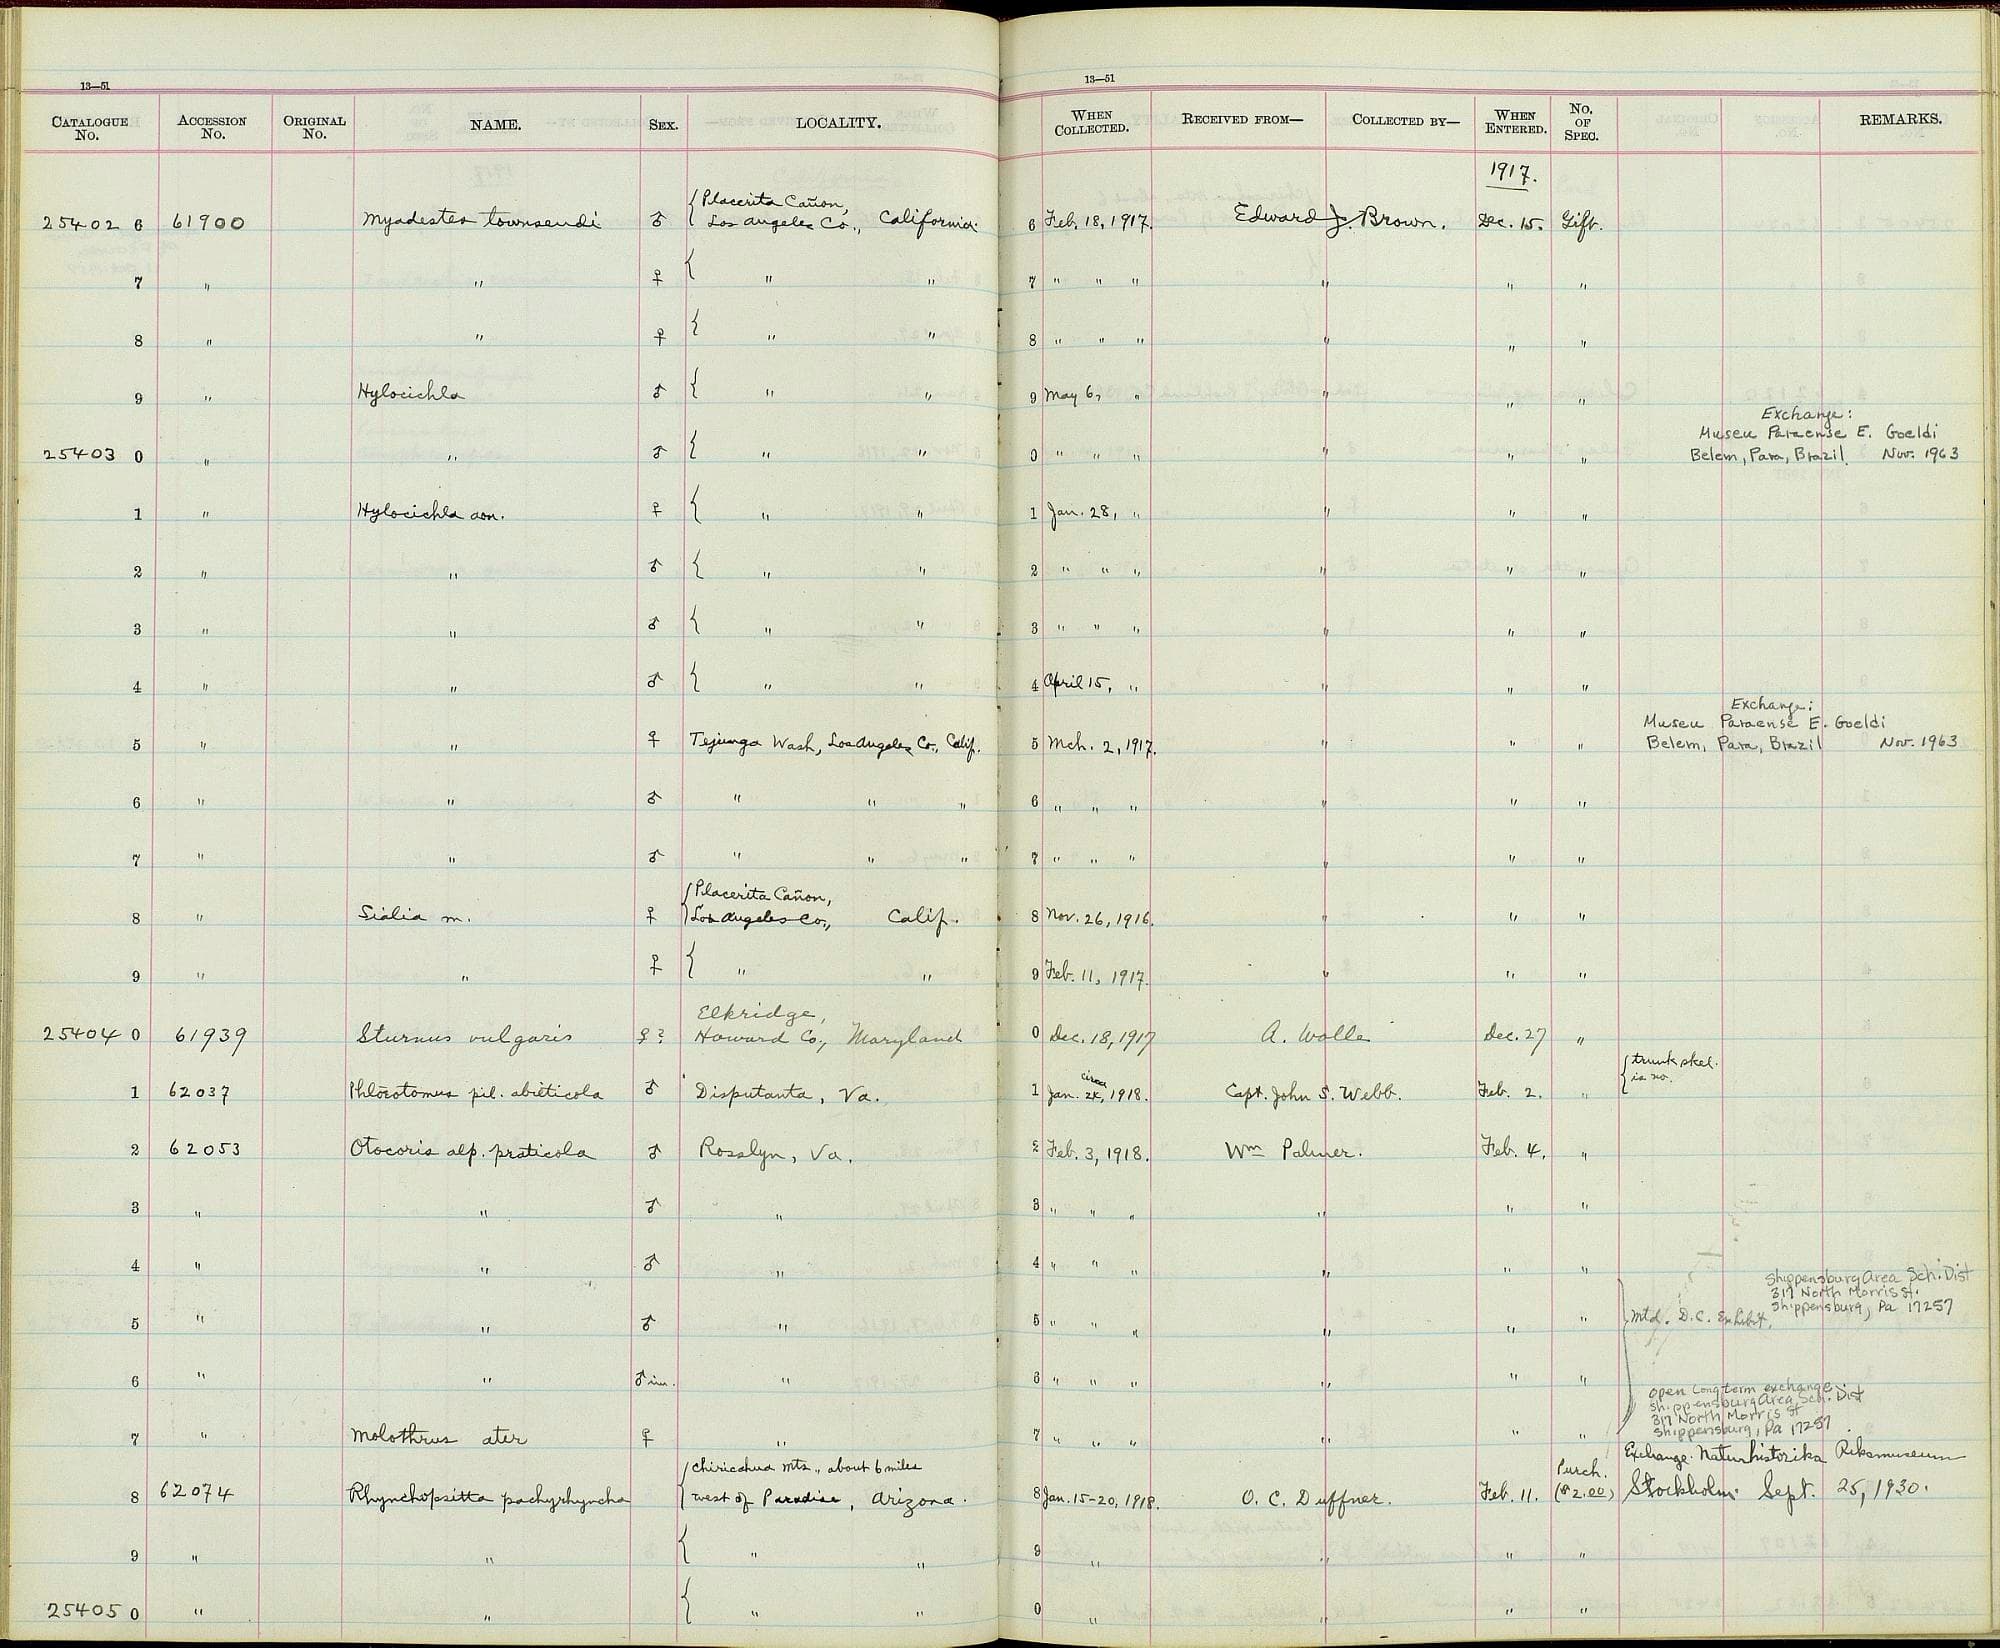 13—51
CATALOGUE No. ACCESSION No. ORIGINAL No. NAME. SEX. LOCALITY.
13—51
WHEN COLLECTED. RECEIVED FROM— COLLECTED BY— WHEN ENTERED. No. OF SPEC. REMARKS.
1917.
25402 6 61900 Myadestes townsendi ♂ { Placerita Cañon, Los Angeles Co., California. 6 Feb. 18, 1917. Edward J. Brown. Dec. 15. Gift.
7 " " ♀ { " " 7 " " " " " "
8 " " ♀ { " " 8 " " " " " "
9 " Hylocichla ♂ { " " 9 May 6, " " " "
Exchange:
Museu Paraense E. Goeldi
25403 0 " " ♂ { " " 0 " " " " " " Belem, Para, Brazil. Nov. 1963
1 " Hylocichla aon. ♀ { " " 1 Jan. 28, " " " "
2 " " ♂ { " " 2 " " " " " "
3 " " ♂ { " " 3 " " " " " "
4 " " ♂ { " " 4 April 15, " " " "
Exchange:
Museu Paraense E. Goeldi
5 " " ♀ Tejunga Wash, Los Angeles Co., Calif. 5 Mch. 2, 1917. " " " Belem, Para, Brazil Nov. 1963
6 " " ♂ " " " 6 " " " " " "
7 " " ♂ " " " 7 " " " " " "
8 " Sialia m. ♀ { Placerita Cañon, Los Angeles Co., Calif. 8 Nov. 26, 1916. " " "
9 " " ♀ { " " 9 Feb. 11, 1917. " " "
25404 0 61939 Sturnus vulgaris ♀? Elkridge, Howard Co., Maryland 0 Dec. 18, 1917 A. Wolle Dec. 27 "
1 62037 Phlœotomus pil. abieticola ♂ Disputanta, Va. 1 Jan. circa 24, 1918. Capt. John S. Webb. Feb. 2. " { trunk skel. is no.
2 62053 Otocoris alp. praticola ♂ Rosslyn, Va. 2 Feb. 3, 1918. Wm Palmer. Feb. 4. "
3 " " ♂ " 3 " " " " " "
4 " " ♂ " 4 " " " " " "
Shippensburg Area Sch. Dist
317 North Morris St.
Shippensburg, Pa 17257
5 " " ♂ " 5 " " " " " " Mtd. D.C. Exhibit.
6 " " ♂ im. " 6 " " " " " "
open long term exchange
Shippensburg Area Sch. Dist
317 North Morris St
Shippensburg, Pa 17257
7 " Molothrus ater ♀ " 7 " " " " " "
8 62074 Rhynchopsitta pachyrhyncha { Chiricahua Mts., about 6 miles west of Paradise, Arizona. 8 Jan. 15-20, 1918. O. C. Duffner. Feb. 11. Purch. ($2.00) Exchange. Naturhistorika Riksmuseum Stockholm Sept. 25, 1930.
9 " " { " " 9 " " " "
25405 0 " " { " " 0 " " " "